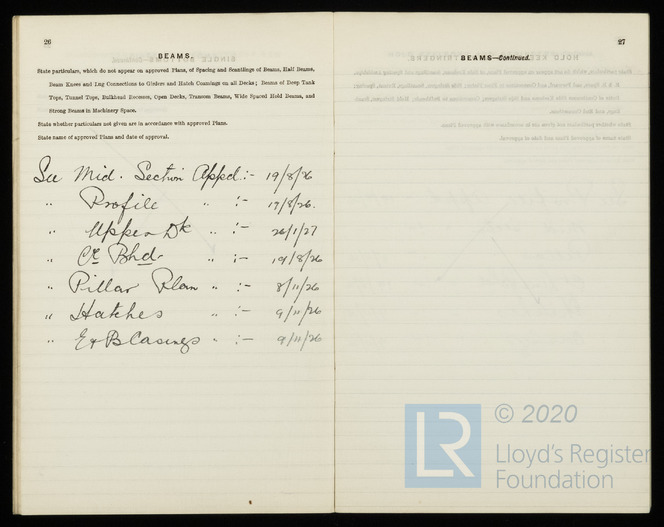 26
BEAMS.
State particulars, which do not appear on approved Plans, of Spacing and Scantlings of Beams, Half Beams,
Beam Knees and Lug Connections to Girders and Hatch Coamings on all Decks; Beams of Deep Tank
Tops, Tunnel Tops, Bulkhead Recesses, Open Decks, Transom Beams, Wide Spaced Hold Beams, and
Strong Beams in Machinery Space.
State whether particulars not given are in accordance with approved Plans.
State name of approved Plans and date of approval.
See Mid. Section Appd:- 19/8/26
" Profile " :- 17/8/26.
" Upper Dk " :- 26/1/27
" Bhd. " :- 19/8/26
" Pillar Plan " :- 8/11/26
" Hatches " :- 9/11/26
" E & B Casings " :- 9/11/26
27
BEAMS—Continued.
LR
© 2020
Lloyd's Register
Foundation